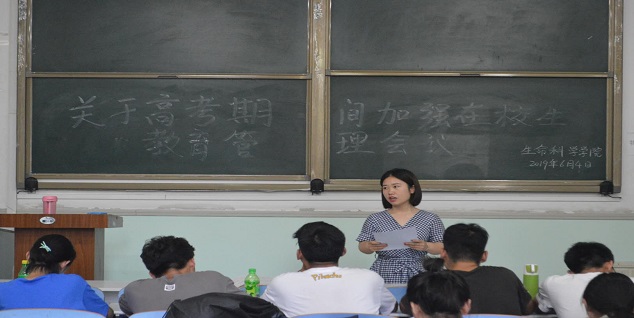 关于高考期间加强在校生
教育管理会议
生命科学学院
2019年6月4日